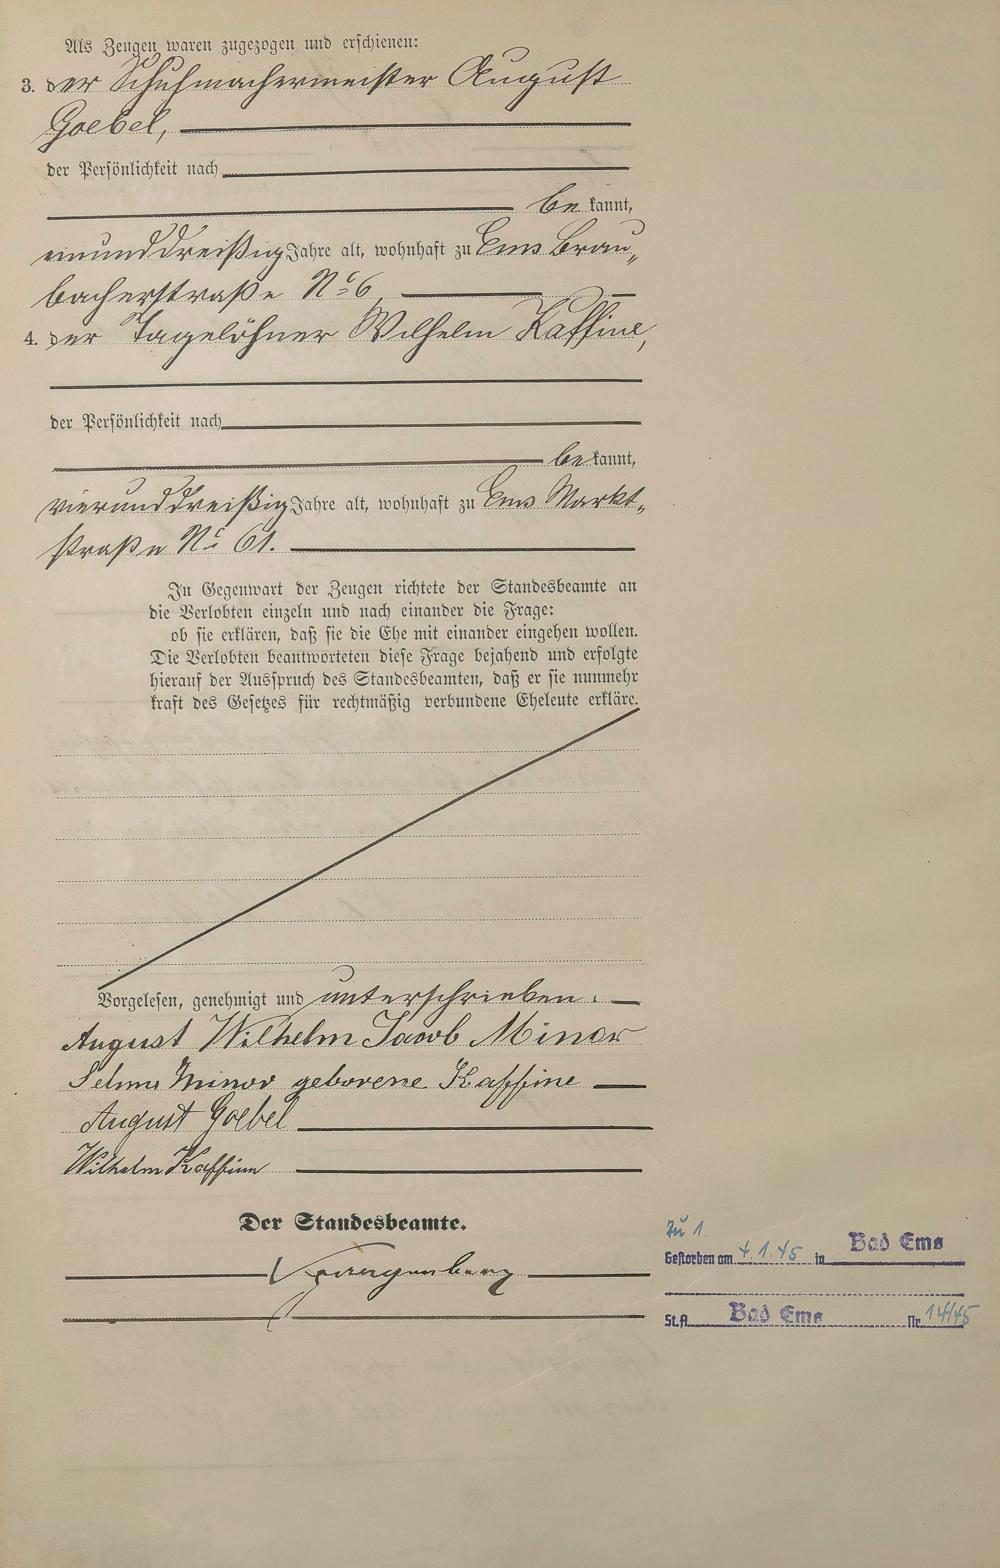 Als Zeugen waren zugezogen und erschienen:
3. der Schuhmachermeister August
Goebel,
der Persönlichkeit nach
bekannt,
einunddreißig Jahre alt, wohnhaft zu Ems Brau„
bacherstraße No 6
4. der Tagelöhner Wilhelm Kaffine,
der Persönlichkeit nach
bekannt,
vierunddreißig Jahre alt, wohnhaft zu Ems Markt„
straße No 61.
In Gegenwart der Zeugen richtete der Standesbeamte an
die Verlobten einzeln und nach einander die Frage:
ob sie erklären, daß sie die Ehe mit einander eingehen wollen.
Die Verlobten beantworteten diese Frage bejahend und erfolgte
hierauf der Ausspruch des Standesbeamten, daß er sie nunmehr
kraft des Gesetzes für rechtmäßig verbundene Eheleute erkläre.
Vorgelesen, genehmigt und unterschrieben.
August Wilhelm Jacob Minor
Selma Minor geborene Kaffine
August Goebel
Wilhelm Kaffine
Der Standesbeamte.
Zu 1.
Gestorben am 4.1.45 in Bad Ems
St.A. Bad Ems Nr. 14/45